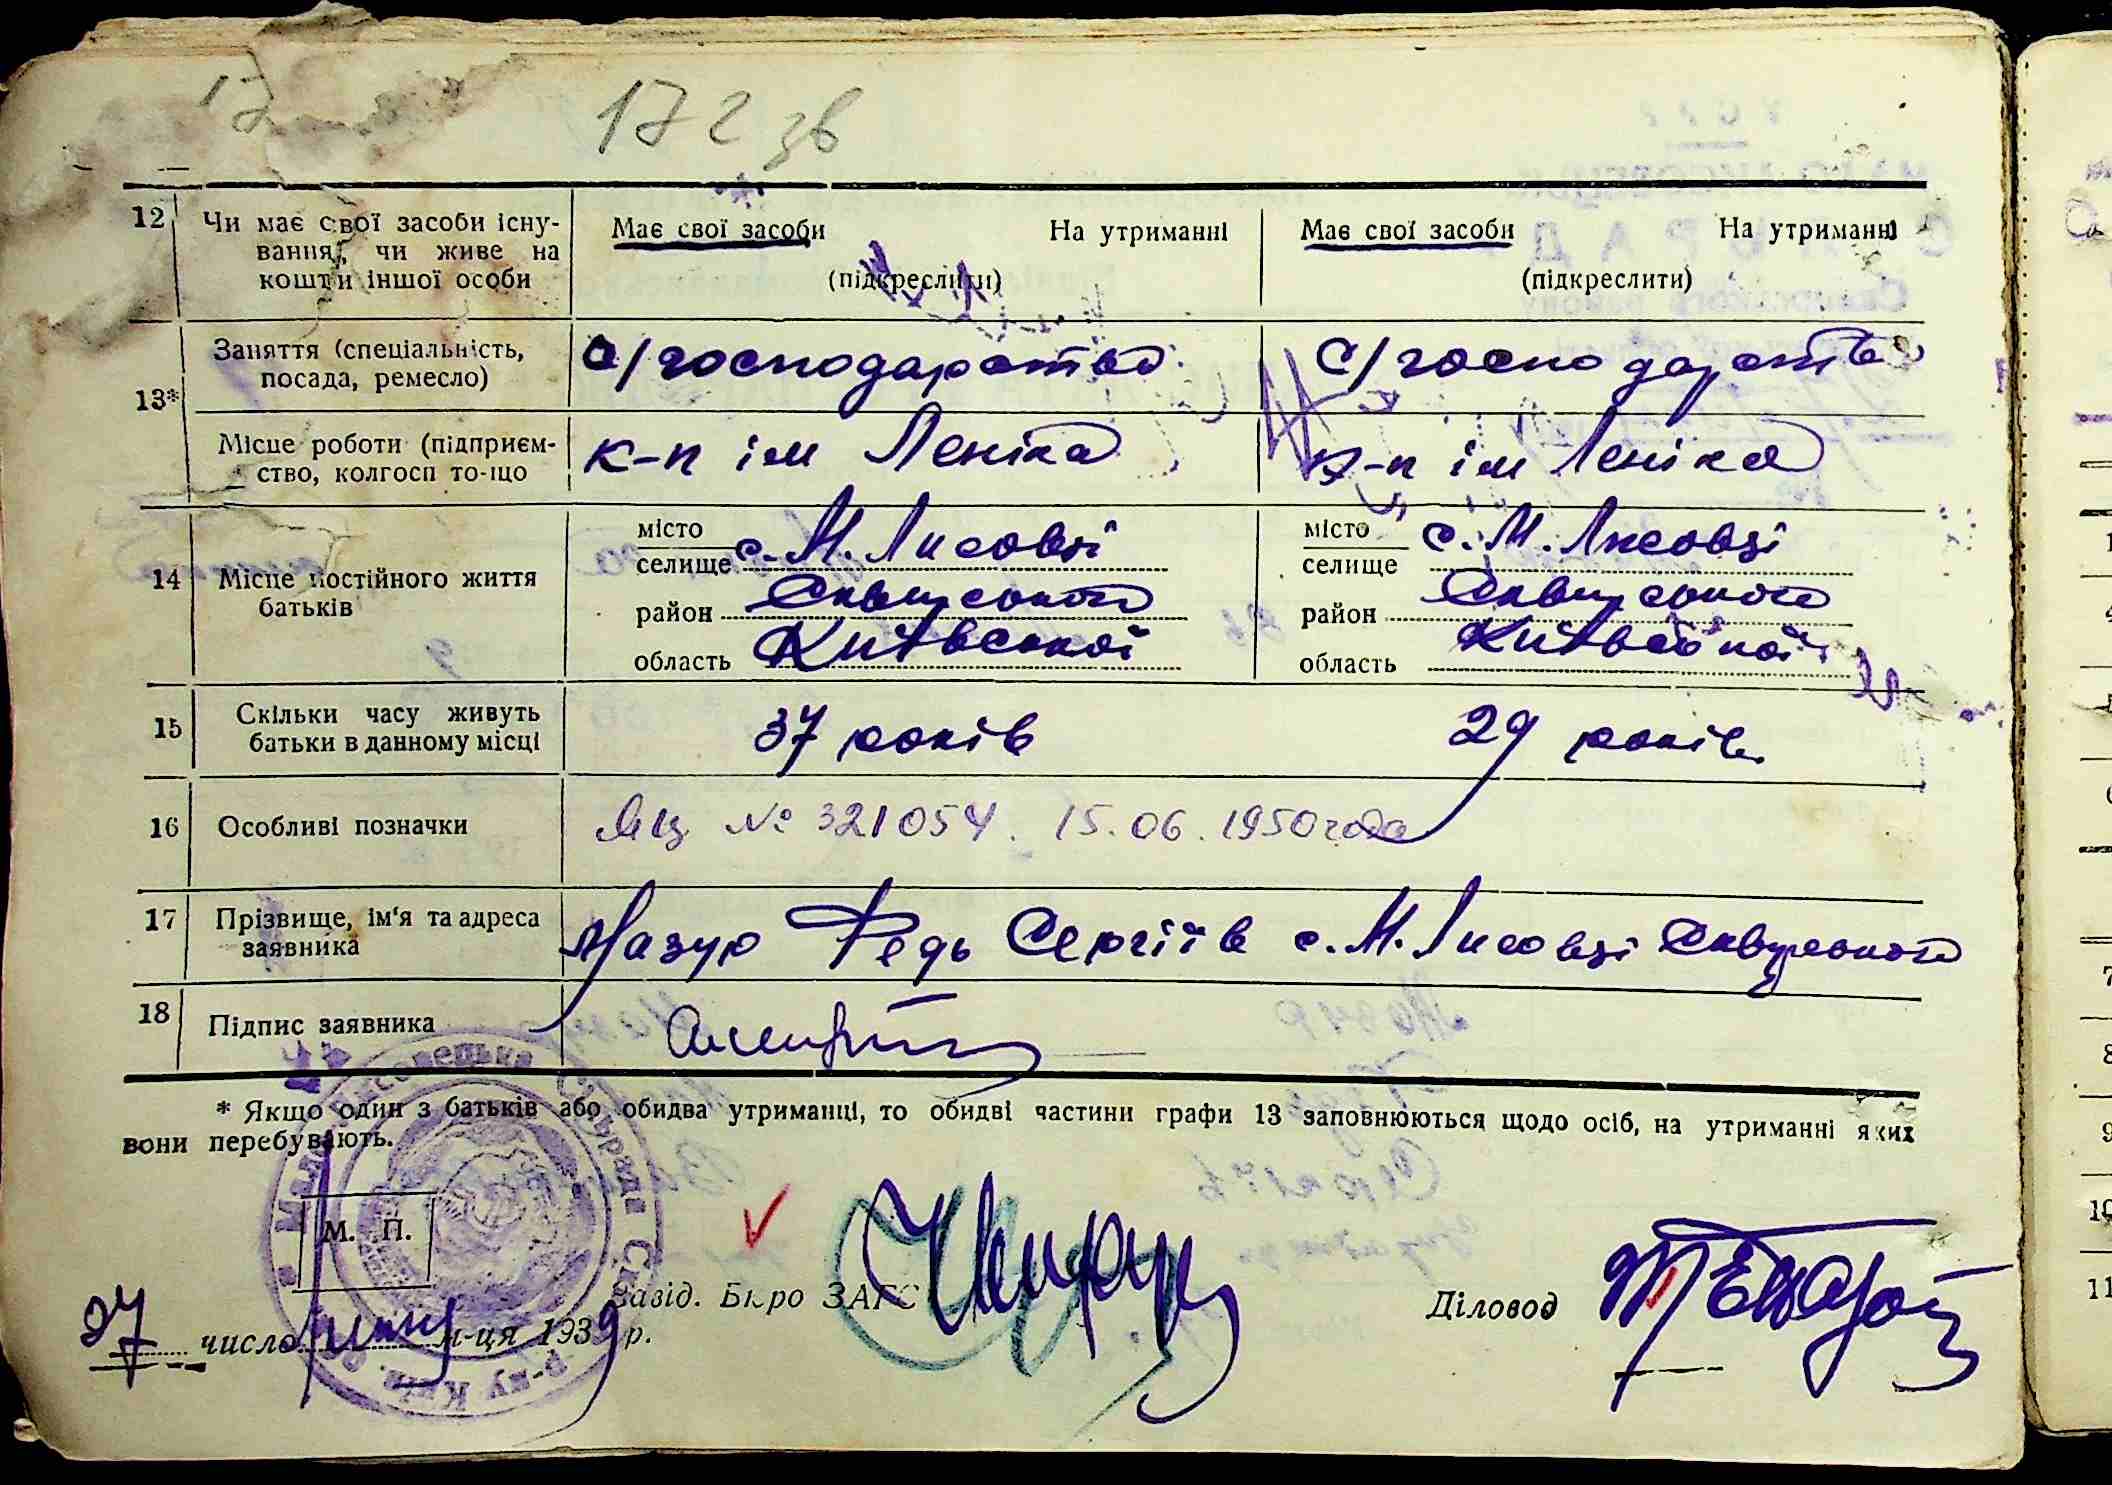 172 зв
12 Чи має свої засоби існу- Має свої засоби На утриманні Має свої засоби На утриманні
вання, чи живе на
кошти іншої особи (підкреслити) (підкреслити)
13* Заняття (спеціальність, с/господарство с/господарство
посада, ремесло)
Місце роботи (підприєм- к-п ім Леніна к-п ім Леніна
ство, колгосп то-що
14 Місце постійного життя батьків місто с. М. Лисовці місто с. М. Лисовці
селище селище
район Сквирського район Сквирського
область Київської область Київської
15 Скільки часу живуть 37 років 29 років
батьки в данному місці
16 Особливі позначки ЯЦ № 321054. 15.06.1950 года
17 Прізвище, ім'я та адреса Мазур Федь Сергіїв с. М. Лисовці Сквирського
заявника
18 Підпис заявника
* Якщо один з батьків або обидва утриманці, то обидві частини графи 13 заповнюються щодо осіб, на утриманні яких
вони перебувають.
М. П.
Завід. Бюро ЗАГС Діловод
27 число м-ця 1939 р.